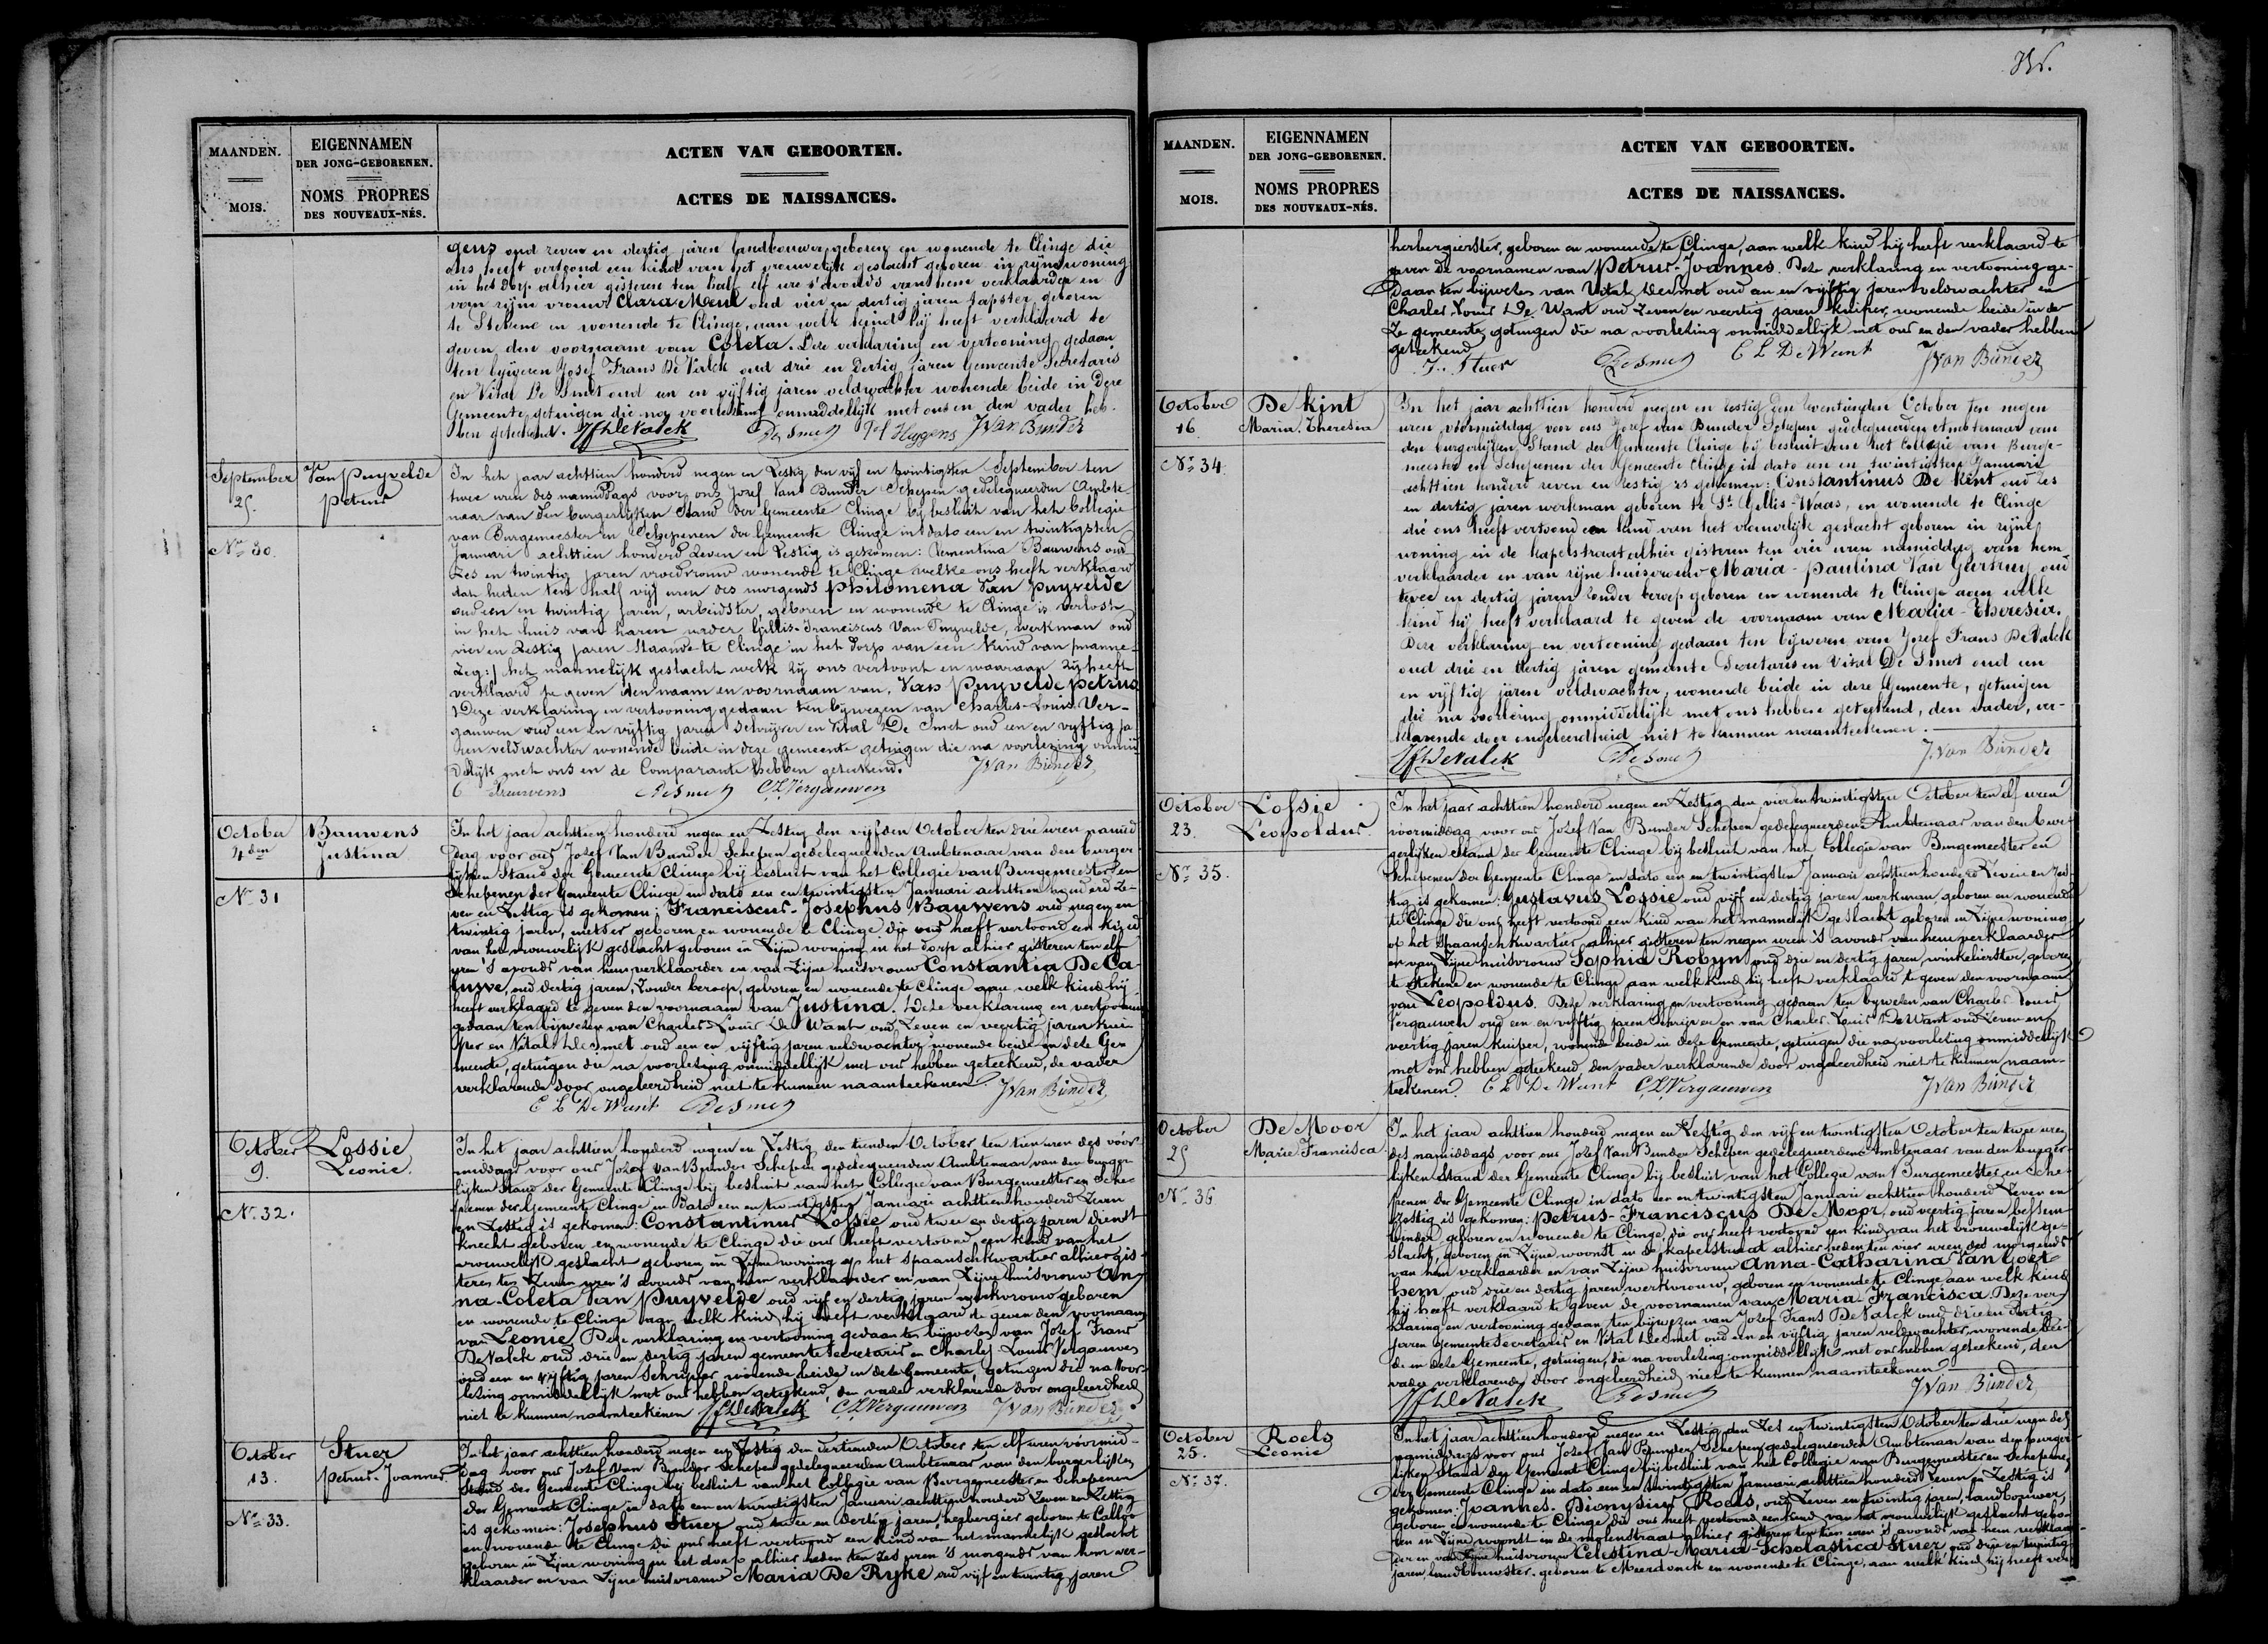 MAANDEN.
MOIS.
EIGENNAMEN
DER JONG-GEBORENEN.
NOMS PROPRES
DES NOUVEAUX-NÉS.
ACTEN VAN GEBOORTEN.
ACTES DE NAISSANCES.
gens oud zeven en dertig jaren landbouwer, geboren en wonende te Clinge die
ons heeft vertoond een kind van het vrouwelijk geslacht geboren in zijne woning
in het dorp alhier gisteren ten half elf ure s'avonds van hem verklaarder en
van zijne vrouw Clara Meul oud vier en dertig jaren tapster geboren
te Stekene en wonende te Clinge, aan welk kind hij heeft verklaard te
geven den voornaam van Coleta. Deze verklaring en vertooning gedaan
ten bijwezen Josef Frans De Valck oud drie en dertig jaren Gemeente Secretaris
en Vital De Smet oud een en vijftig jaren veldwachter wonende beide in deze
Gemeente getuigen die na voorlezing onmiddellijk met ons en den vader heb-
ben geteekend. Jf DeValck DeSmet Jof Huygens JVan Bunder
September
25.
Van Puyvelde
Petrus
No 30.
In het jaar achttien honderd negen en Zestig den vijf en twintigsten September ten
twee uren des namiddags voor ons Josef Van Bunder Schepen gedelegueerden Ambte-
naar van den burgerlijken Stand der Gemeente Clinge bij besluit van het Collegie
van Burgemeester en Schepenen der Gemeente Clinge in dato een en twintigsten
Januari achttien honderd Zeven en Zestig is gekomen: Clementina Bauwens oud
Zes en twintig jaren vroedvrouw wonende te Clinge welke ons heeft verklaard
dat heden ten half vijf uren des morgends Philomena Van Puyvelde
oud een en twintig jaren, arbeidster, geboren en wonende te Clinge is verlost
in het huis van haren vader Gillis-Franciscus Van Puyvelde, werkman oud
vier en Zestig jaren staande te Clinge in het dorp van een Kind van /manne-
Zeg:/ het mannelijk geslacht welk zij ons vertoont en waaraan Zij heeft
verklaard te geven den naam en voornaam van, Van Puyvelde Petrus
Deze verklaring en vertooning gedaan ten bijwezen van Charles-Louis Ver-
gauwen oud een en vijftig jaren schrijver en Vital De Smet oud een en vijftig ja
ren veldwachter wonende beide in deze gemeente getuigen die na voorlezing onmid
delijk met ons en de Comparante hebben geteekend. JVan Bunder
C Bauwens DeSmet CLVergauwen
October
4den
Bauwens
Justina
No 31
In het jaar achttien honderd negen en Zestig den vijfden October ten drie uren namid
dag voor ons Josef Van Bunder Schepen gedelegueerden Ambtenaar van den burger
lijken Stand der Gemeente Clinge bij besluit van het Collegie van Burgemeester en
Schepenen der Gemeente Clinge in dato een en twintigsten Januari achttien honderd Ze-
ven en Zestig is gekomen: Franciscus-Josephus Bauwens oud negen en
twintig jaren, metser geboren en wonende te Clinge die ons heeft vertoond een kind
van het vrouwelijk geslacht geboren in Zijne woning in het dorp alhier gisteren ten elf
uren 's avonds van hem verklaarder en van Zijne huisvrouw Constantia De Ca-
luwe, oud dertig jaren, Zonder beroep, geboren en wonende te Clinge aan welk kind hij
heeft verklaard te geven den voornaam van Justina. Deze verklaring en vertooning
gedaan ten bijwezen van Charles Louis De Want oud Zeven en veertig jaren kui
per en Vital De Smet oud een en vijftig jaren veldwachter wonende beide in deze Ge
meente, getuigen die na voorlezing onmiddellijk met ons hebben geteekend, de vader
verklarende door ongeleerdheid niet te kunnen naamteekenen. JVan Bunder
C L De Want DeSmet
October
9.
Lossie
Leonie.
No 32.
In het jaar achttien honderd negen en Zestig den tienden October ten tien uren des vóór
middags voor ons Josef Van Bunder Schepen gedelegueerden Ambtenaar van den burger
lijken Stand der Gemeente Clinge bij besluit van het Collegie van Burgemeester en Sche-
penen der Gemeente Clinge in dato een en twintigsten Januari achttien honderd Zeven
en Zestig is gekomen: Constantinus Lossie oud twee en dertig jaren dienst
knecht geboren en wonende te Clinge die ons heeft vertoond een kind van het
vrouwelijk geslacht geboren in Zijne woning op het Spaanschkwartier alhier gis
teren ten Zeven uren 's avonds van hem verklaarder en van Zijne huisvrouw An
na-Coleta Van Puyvelde oud vijf en dertig jaren werkvrouw geboren
en wonende te Clinge aan welk kind hij heeft verklaard te geven den voornaam
van Leonie. Deze verklaring en vertooning gedaan ten bijwezen van Josef Frans
De Valck oud drie en dertig jaren gemeente Secretaris en Charles Louis Vergauwen
oud een en vijftig jaren Schrijver wonende beide in deze Gemeente, getuigen die na voor
lezing onmiddellijk met ons hebben geteekend, den vader verklarende door ongeleerdheid
niet te kunnen naamteekenen JfDeValck CLVergauwen JVan Bunder.
October
13.
Stuer
Petrus-Joannes
No 33.
In het jaar achttien honderd negen en Zestig den dertienden October ten elf uren vóórmid-
dag voor ons Josef Van Bunder Schepen gedelegueerden Ambtenaar van den burgerlijken
Stand der Gemeente Clinge bij besluit van het Collegie van Burgemeester en Schepenen
der Gemeente Clinge in dato een en twintigsten Januari achttien honderd Zeven en Zestig
is gekomen: Josephus Stuer oud twee en dertig jaren, herbergier geboren te Calloo
en wonende te Clinge die ons heeft vertoond een kind van het mannelijk geslacht
geboren in Zijne woning in het dorp alhier heden ten Zes uren 's morgends van hem ver-
klaarder en van Zijne huisvrouw Maria De Ryke oud vijf en twintig jaren
MAANDEN.
MOIS.
EIGENNAMEN
DER JONG-GEBORENEN.
NOMS PROPRES
DES NOUVEAUX-NÉS.
ACTEN VAN GEBOORTEN.
ACTES DE NAISSANCES.
herbergierster, geboren en wonende te Clinge, aan welk kind hij heeft verklaard te
geven de voornamen van Petrus-Joannes. Deze verklaring en vertooning ge-
daan ten bijwezen van Vital De Smet oud een en vijftig jaren veldwachter en
Charles Louis De Want oud Zeven en veertig jaren kuiper, wonende beide in de
Ze gemeente, getuigen die na voorlezing onmiddellijk met ons en den vader hebben
geteekend
J. Stuer DeSmet C L De Want JVan Bunder
October
16
De Kint
Maria Theresia
No 34.
In het jaar achttien honderd negen en zestig den zeventienden October ten negen
uren vóormiddag voor ons Josef van Bunder Schepen gedelegueerden Ambtenaar van
den burgerlijken Stand der Gemeente Clinge bij besluit van het Collegie van Burge-
meester en Schepenen der Gemeente Clinge in dato een en twintigsten Januari
achttien honderd zeven en zestig is gekomen: Constantinus De Kint oud zes
en dertig jaren werkman geboren te St Gillis-Waas, en wonende te Clinge
die ons heeft vertoond een kind van het vrouwelijk geslacht geboren in zijne
woning in de Kapelstraat alhier gisteren ten vier uren namiddag van hem
verklaarder en van zijne huisvrouw Maria-Paulina Van Geertruy oud
twee en dertig jaren zonder beroep geboren en wonende te Clinge aan welk
kind hij heeft verklaard te geven de voornaam van Maria-Theresia.
Deze verklaring en vertooning gedaan ten bijwezen van Josef Frans De Valck
oud drie en dertig jaren gemeente Secretaris en Vital De Smet oud een
en vijftig jaren veldwachter, wonende beide in deze Gemeente, getuigen
die na voorlezing onmiddellijk met ons hebben geteekend, den vader, ver-
klarende door ongeleerdheid niet te kunnen naamteekenen.
JfDeValck DeSmet J.Van Bunder
October
23.
Lossie
Leopoldus.
No 35.
In het jaar achttien honderd negen en Zestig den vier en twintigsten October ten elf uren
voormiddag voor ons Josef Van Bunder Schepen gedelegueerden Ambtenaar van den bur-
gerlijken Stand der Gemeente Clinge bij besluit van het Collegie van Burgemeester en
Schepenen der Gemeente Clinge in dato een en twintigsten Januari achttien honderd Zeven en Zes-
tig is gekomen: Gustavus Lossie oud vijf en dertig jaren werkman geboren en wonende
te Clinge die ons heeft vertoond een Kind van het mannelijk geslacht geboren in Zijne woning
op het Spaanschkwartier alhier gisteren ten negen uren 's avonds van hem verklaarder
en van Zijne huisvrouw Sophia Robyn oud drie en dertig jaren, winkelierster, geboren
te Stekene en wonende te Clinge aan welk kind hij heeft verklaard te geven den voornaam
van Leopoldus. Deze verklaring en vertooning gedaan ten bijwezen van Charles Louis
Vergauwen oud een en vijftig jaren Schrijver en van Charles Louis De Want oud Zeven en
veertig jaren kuiper, wonende beide in deze Gemeente, getuigen die na voorlezing onmiddellijk
met ons hebben geteekend den vader verklarende door ongeleerdheid niet te kunnen naam-
teekenen. C L De Want CLVergauwen JVan Bunder
October
25
De Moor
Marie Francisca
No 36
In het jaar achttien honderd negen en Zestig den vijf en twintigsten October ten twee uren
des namiddags voor ons Josef Van Bunder Schepen gedelegueerden Ambtenaar van den burger-
lijken Stand der Gemeente Clinge bij besluit van het Collegie van Burgemeester en Sche-
penen der Gemeente Clinge in dato een en twintigsten Januari achttien honderd Zeven en
Zestig is gekomen: Petrus-Franciscus De Moor, oud veertig jaren bessem-
binder geboren en wonende te Clinge, die ons heeft vertoond een kind van het vrouwelijk ge-
slacht, geboren in Zijne woonst in de Kapelstraat alhier heden ten vier uren des morgends
van hem verklaarder en van Zijne huisvrouw Anna-Catharina Van Goet-
hem oud drie en dertig jaren, werkvrouw, geboren en wonende te Clinge aan welk kind
hij heeft verklaard te geven de voornamen van Maria-Francisca. Deze ver
klaring en vertooning gedaan ten bijwezen van Josef Frans De Valck oud drie en dertig
jaren gemeente Secretaris en Vital De Smet oud een en vijftig jaren veldwachter, wonende bei-
de in deze Gemeente, getuigen, die na voorlezing onmiddellijk met ons hebben geteekend, den
vader verklarende door ongeleerdheid niet te kunnen naamteekenen
JfDeValck DeSmet JVan Bunder
October
25.
Roels
Leonie
No 37.
In het jaar achttien honderd negen en Zestig den Zes en twintigsten October ten drie uren des
namiddags voor ons Josef Van Bunder Schepen gedelegueerden Ambtenaar van den burger
lijken Stand der Gemeente Clinge bij besluit van het Collegie van Burgemeester en Schepenen
der Gemeente Clinge in dato een en twintigsten Januari achttien honderd Zeven en Zestig is
gekomen: Joannes-Dionysius Roels, oud Zeven en twintig jaren, landbouwer,
geboren en wonende te Clinge die ons heeft vertoond een kind van het vrouwelijk geslacht gebo-
ren in Zijne woonst in de molenstraat alhier gisteren ten tien uren 's avonds van hem verklaar
der en van Zijne huisvrouw Celestina-Maria-Scholastica Stuer oud drie en twintig
jaren, landbouwster, geboren te Meerdonck en wonende te Clinge, aan welk kind hij heeft ver